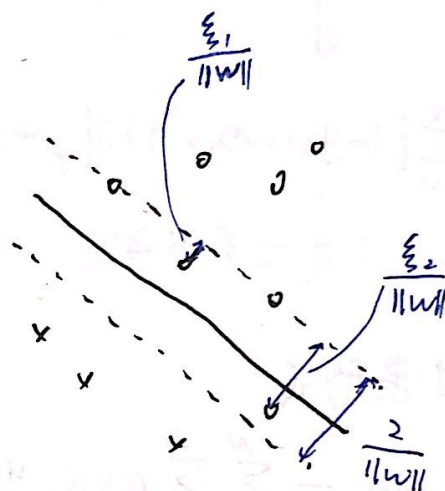 ξ1
||w||
ξ2
||w||
2
||w||